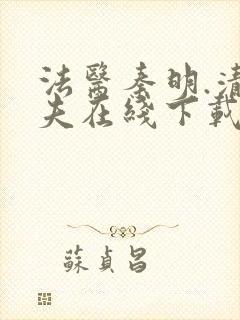 法醫秦明.清
夫在綫下載
蘇貞昌